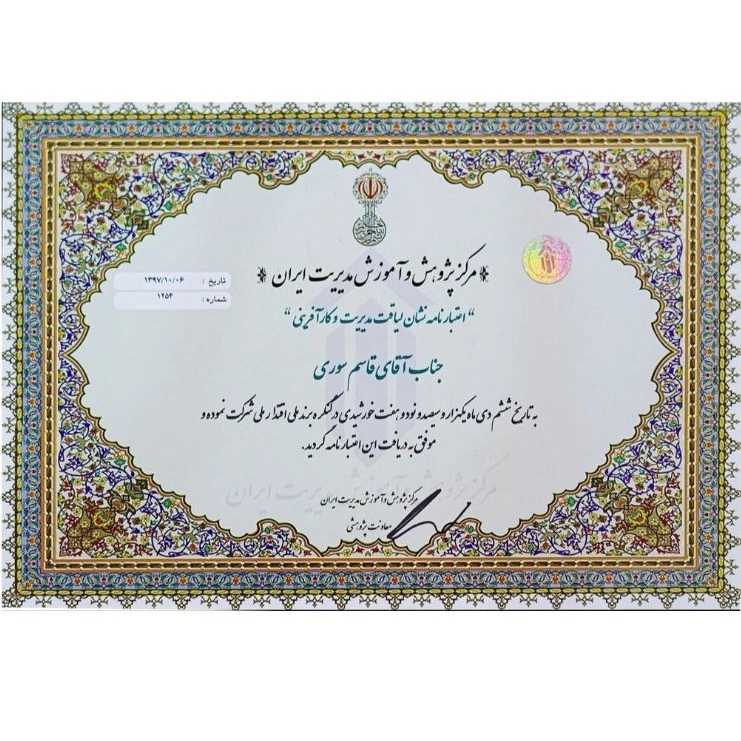 مرکز پژوهش و آموزش مدیریت ایران
تاریخ : ۱۳۹۷/۱۰/۰۶
شماره : ۱۲۵۴
"اعتبارنامه نشان لیاقت مدیریت و کارآفرینی"
جناب آقای قاسم سوری
به تاریخ ششم دی ماه یکهزار و سیصد و نود و هفت خورشیدی در کنگره برند ملی اقتدار ملی شرکت نموده و
موفق به دریافت این اعتبارنامه گردید.
مرکز پژوهش و آموزش مدیریت ایران
مرکز پژوهش و آموزش مدیریت ایران
معاونت پژوهشی